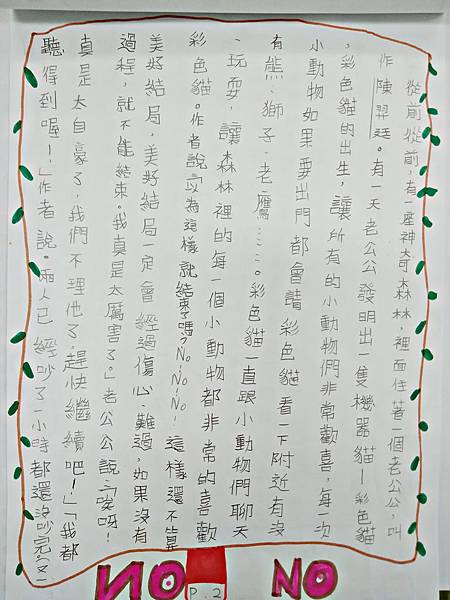 從前從前，有一座神奇森林，裡面住著一個老公公，叫
作陳羿廷。有一天老公公發明出一隻機器貓—彩色貓
，彩色貓的出生，讓所有的小動物們非常歡喜，每一次
小動物如果要出門都會請彩色貓看一下附近有沒
有熊、獅子、老鷹……。彩色貓一直跟小動物們聊天
、玩耍，讓森林裡的每一個小動物都非常的喜歡
彩色貓。作者說「以為這樣就結束了嗎？No！No！No！這樣還不算
美好結局，美好結局一定會經過傷心、難過，如果沒有
過程，就不能結束。我真是太厲害了。」老公公說：「唉呀！
真是太自豪了，我們不理他了，趕快繼續吧！」「我都
聽得到喔！」作者說。兩人已經吵了一小時都還沒吵完（又一
NO
P.2
NO